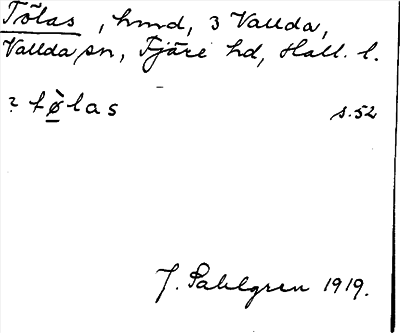 Tölas, hmd, 3 Vallda,
Vallda sn, Fjäre hd, Hall. l.
? tø̀las s.52
J. Sahlgren 1919.